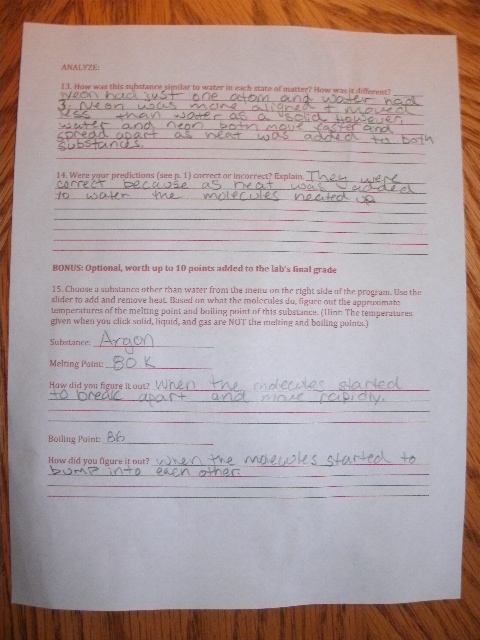 ANALYZE:
13. How was this substance similar to water in each state of matter? How was it different?
Neon had just one atom and water had
3. Neon was more aligned + moved
less than water as a solid however,
water and neon both move faster and
spread apart as heat was added to both
substances.
14. Were your predictions (see p. 1) correct or incorrect? Explain. They were
correct because as heat was added
to water the molecules heated up
BONUS: Optional, worth up to 10 points added to the lab's final grade
15. Choose a substance other than water from the menu on the right side of the program. Use the
slider to add and remove heat. Based on what the molecules do, figure out the approximate
temperatures of the melting point and boiling point of this substance. (Hint: The temperatures
given when you click solid, liquid, and gas are NOT the melting and boiling points.)
Substance: Argon
Melting Point: 80 K
How did you figure it out? When the molecules started
to break apart and move rapidly.
Boiling Point: 86
How did you figure it out? when the molecules started to
bump into each other.